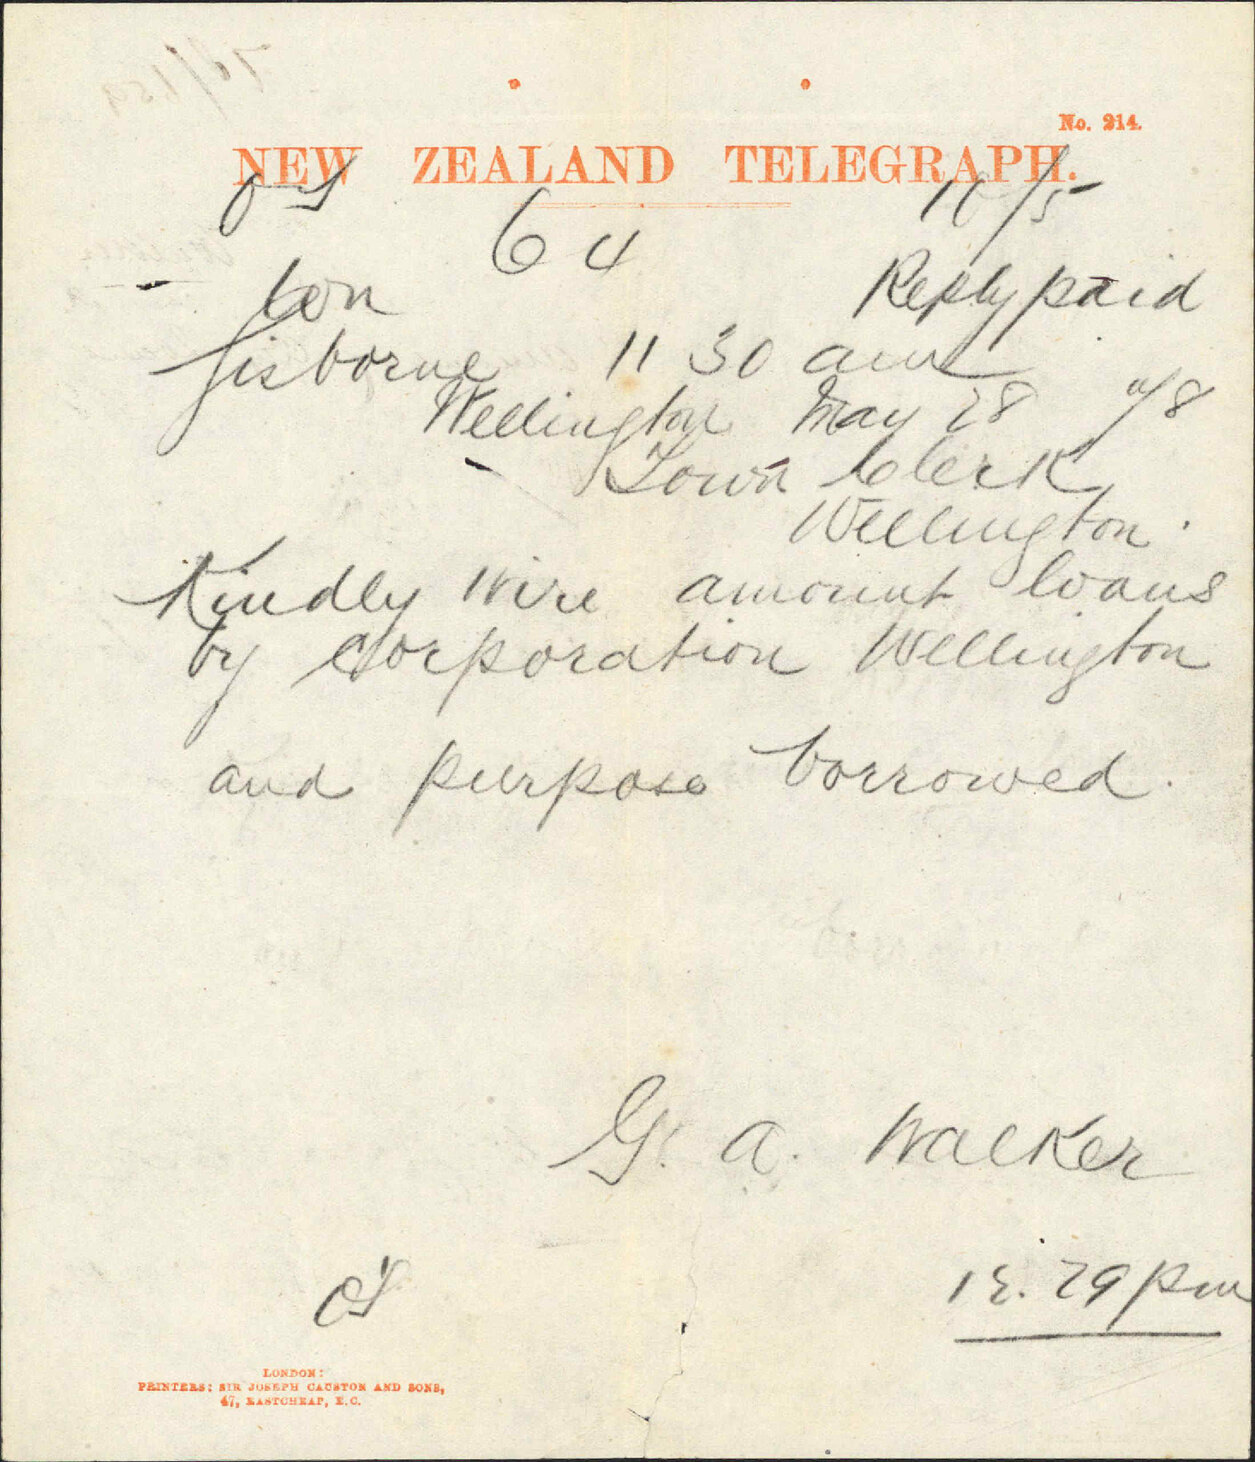 No. 214.
NEW ZEALAND TELEGRAPH.
64 10/5
Reply paid
Gisborne 11 30 am
Wellington May 28 /78
Town Clerk
Wellington.
Kindly wire amount loans
by Corporation Wellington
and purpose borrowed.
G. A. Walker
12.29 pm
LONDON:
PRINTERS: SIR JOSEPH CAUSTON AND SONS,
47, EASTCHEAP, E.C.